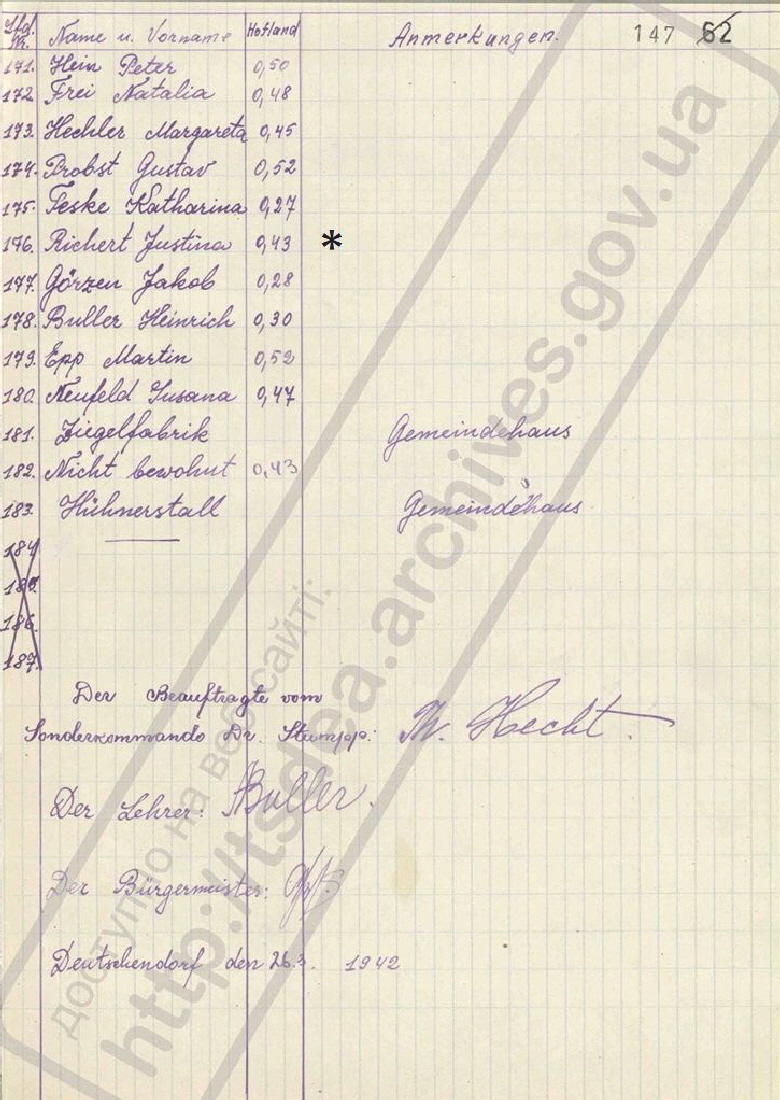 Lfd. Nr. Name u. Vorname Hofland Anmerkungen. 147 62
171. Hein Peter 0,50
172. Frei Natalia 0,48
173. Hechler Margareta 0,45
174. Probst Gustav 0,52
175. Feske Katharina 0,27
176. Richert Justina 0,43 *
177. Görzen Jakob 0,28
178. Buller Heinrich 0,30
179. Epp Martin 0,52
180. Neufeld Susana 0,47
181. Ziegelfabrik Gemeindehaus
182. Nicht bewohnt 0,43
183. Hühnerstall Gemeindehaus
184
185.
186.
187.
Der Beauftragte vom
Sonderkommando Dr. Stumpp: Hecht.
Der Lehrer: Buller.
Der Bürgermeister:
Deutschendorf den 26.3. 1942
доступно на веб-сайті:
http://tsdea.archives.gov.ua